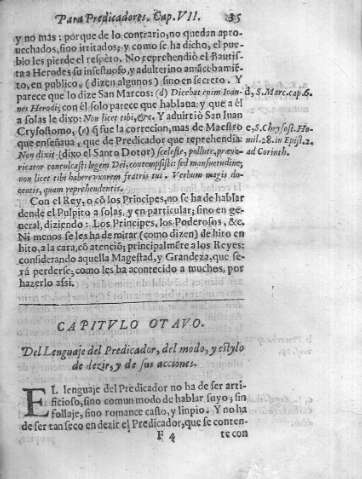 Para Predicadores. Cap. VII. 35
y no mas: porque de lo contrario, no quedan apro-
uechados, sino irritados; y como se ha dicho, el pue-
blo les pierde el respeto. No reprehendiò el Bautis-
ta a Herodes su incestuoso, y adulterino amãcebamiẽ-
to, en publico, (dizen algunos) sino en secreto. Y
parece que lo dize San Marcos: (d) Dicebat enim Ioan-
nes Herodi; con èl solo parece que hablaua: y que a èl
a solas le dixo: Non licet tibi, &c. Y aduirtiò San Iuan
Crysostomo, (e) q̃ fue la correcion, mas de Maestro
que enseñaua, que de Predicador que reprehendia
Non dixit (dixo el Santo Dotor) sceleste, pollute, præua-
ricator conculcasti legem Dei, contempsisti: sed mansuetudine;
non licet tibi habere vxorem fratris tui. Verbum magis do-
centis, quam reprehendentis.
d, S. Marc. cap. 6.
e, S. Chrysost. Ho-
mil. 28. in Epist. 2.
ad Corinth.
Con el Rey, o cõ los Principes, no se ha de hablar
desde el Pulpito a solas, y en particular; sino en ge-
neral, diziendo: Los Principes, los Poderosos, &c.
Ni menos se les ha de mirar (como dizen) de hito en
hito, a la cara, cõ atenciõ; principalmẽte a los Reyes:
considerando aquella Magestad, y Grandeza, que se-
rà perderse, como les ha acontecido a muchos, por
hazerlo assi.
CAPITVLO OTAVO.
Del Lenguaje del Predicador, del modo, y estylo
de dezir, y de sus acciones.
EL lenguaje del Predicador no ha de ser arti-
ficioso, sino comun modo de hablar suyo; sin
follaje, sino romance casto, y limpio. Y no ha
de ser tan seco en dezir el Predicador, que se conten-
F 4 te con